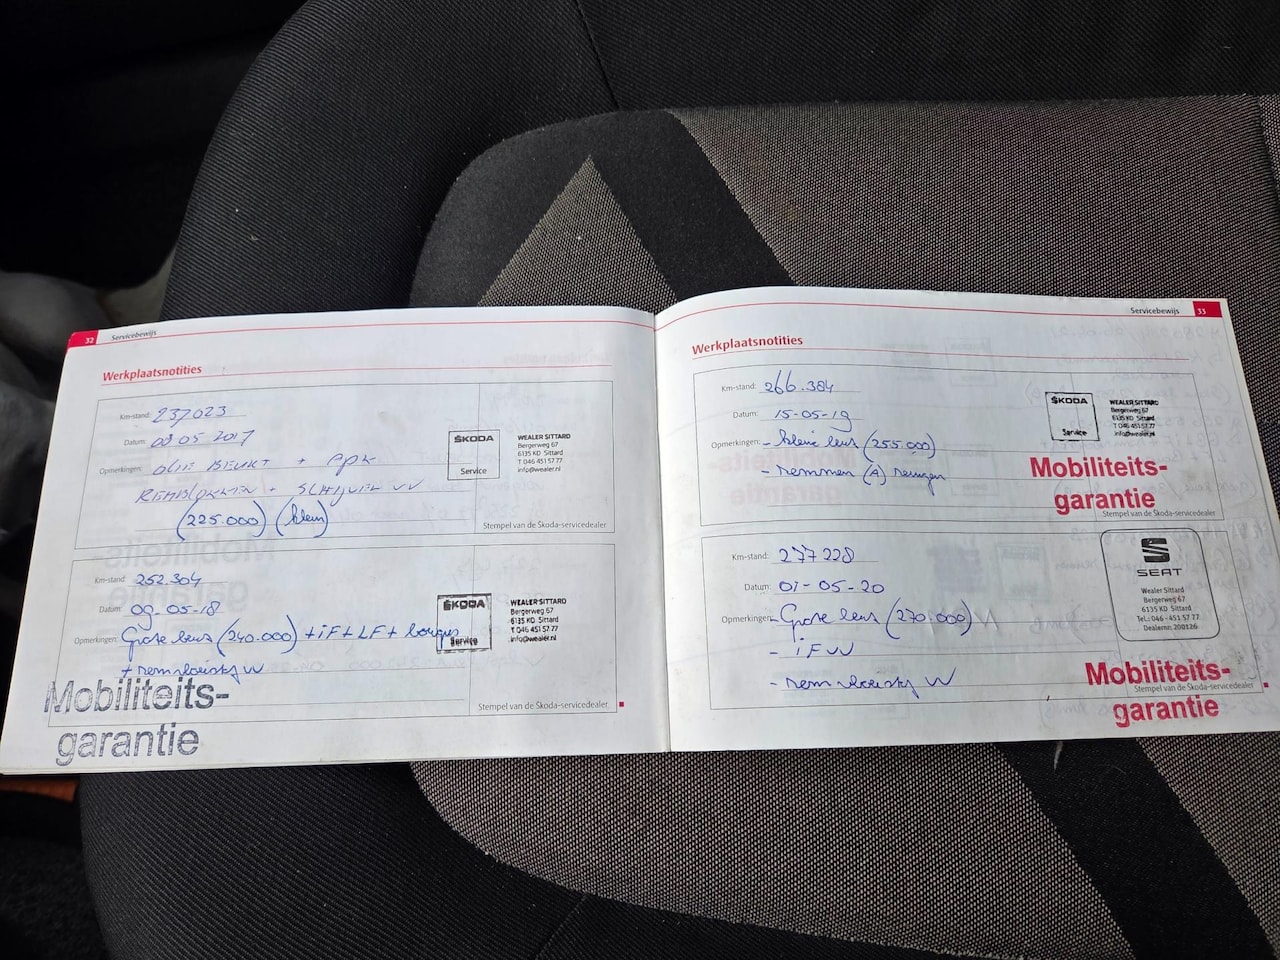 32 Servicebewijs
Werkplaatsnotities
Km-stand: 237023
Datum: 08 05 2017
Opmerkingen: OLIE BEURT + APK
REMBLOKKEN + SCHIJVEN VV
(225.000) (klein)
ŠKODA
Service
WEALER SITTARD
Bergerweg 67
6135 KD Sittard
T 046 451 57 77
info@wealer.nl
Stempel van de Škoda-servicedealer
Km-stand: 252.304
Datum: 09-05-18
Opmerkingen: Grote beurt (240.000) + iF + LF + bougies
+ remvloeistof VV
ŠKODA
Service
WEALER SITTARD
Bergerweg 67
6135 KD Sittard
T 046 451 57 77
info@wealer.nl
Mobiliteits-
garantie
Stempel van de Škoda-servicedealer
Servicebewijs 33
Werkplaatsnotities
Km-stand: 266.384
Datum: 15-05-19
Opmerkingen: - kleine beurt (255.000)
- remmen (A) reinigen
ŠKODA
Service
WEALER SITTARD
Bergerweg 67
6135 KD Sittard
T 046 451 57 77
info@wealer.nl
Mobiliteits-
garantie
Stempel van de Škoda-servicedealer
Km-stand: 277228
Datum: 01-05-20
Opmerkingen: - Grote beurt (270.000)
- iF VV
- remvloeistof VV
SEAT
Wealer Sittard
Bergerweg 67
6135 KD Sittard
Tel.: 046 - 451 57 77
Dealernr. 200126
Mobiliteits-
garantie
Stempel van de Škoda-servicedealer